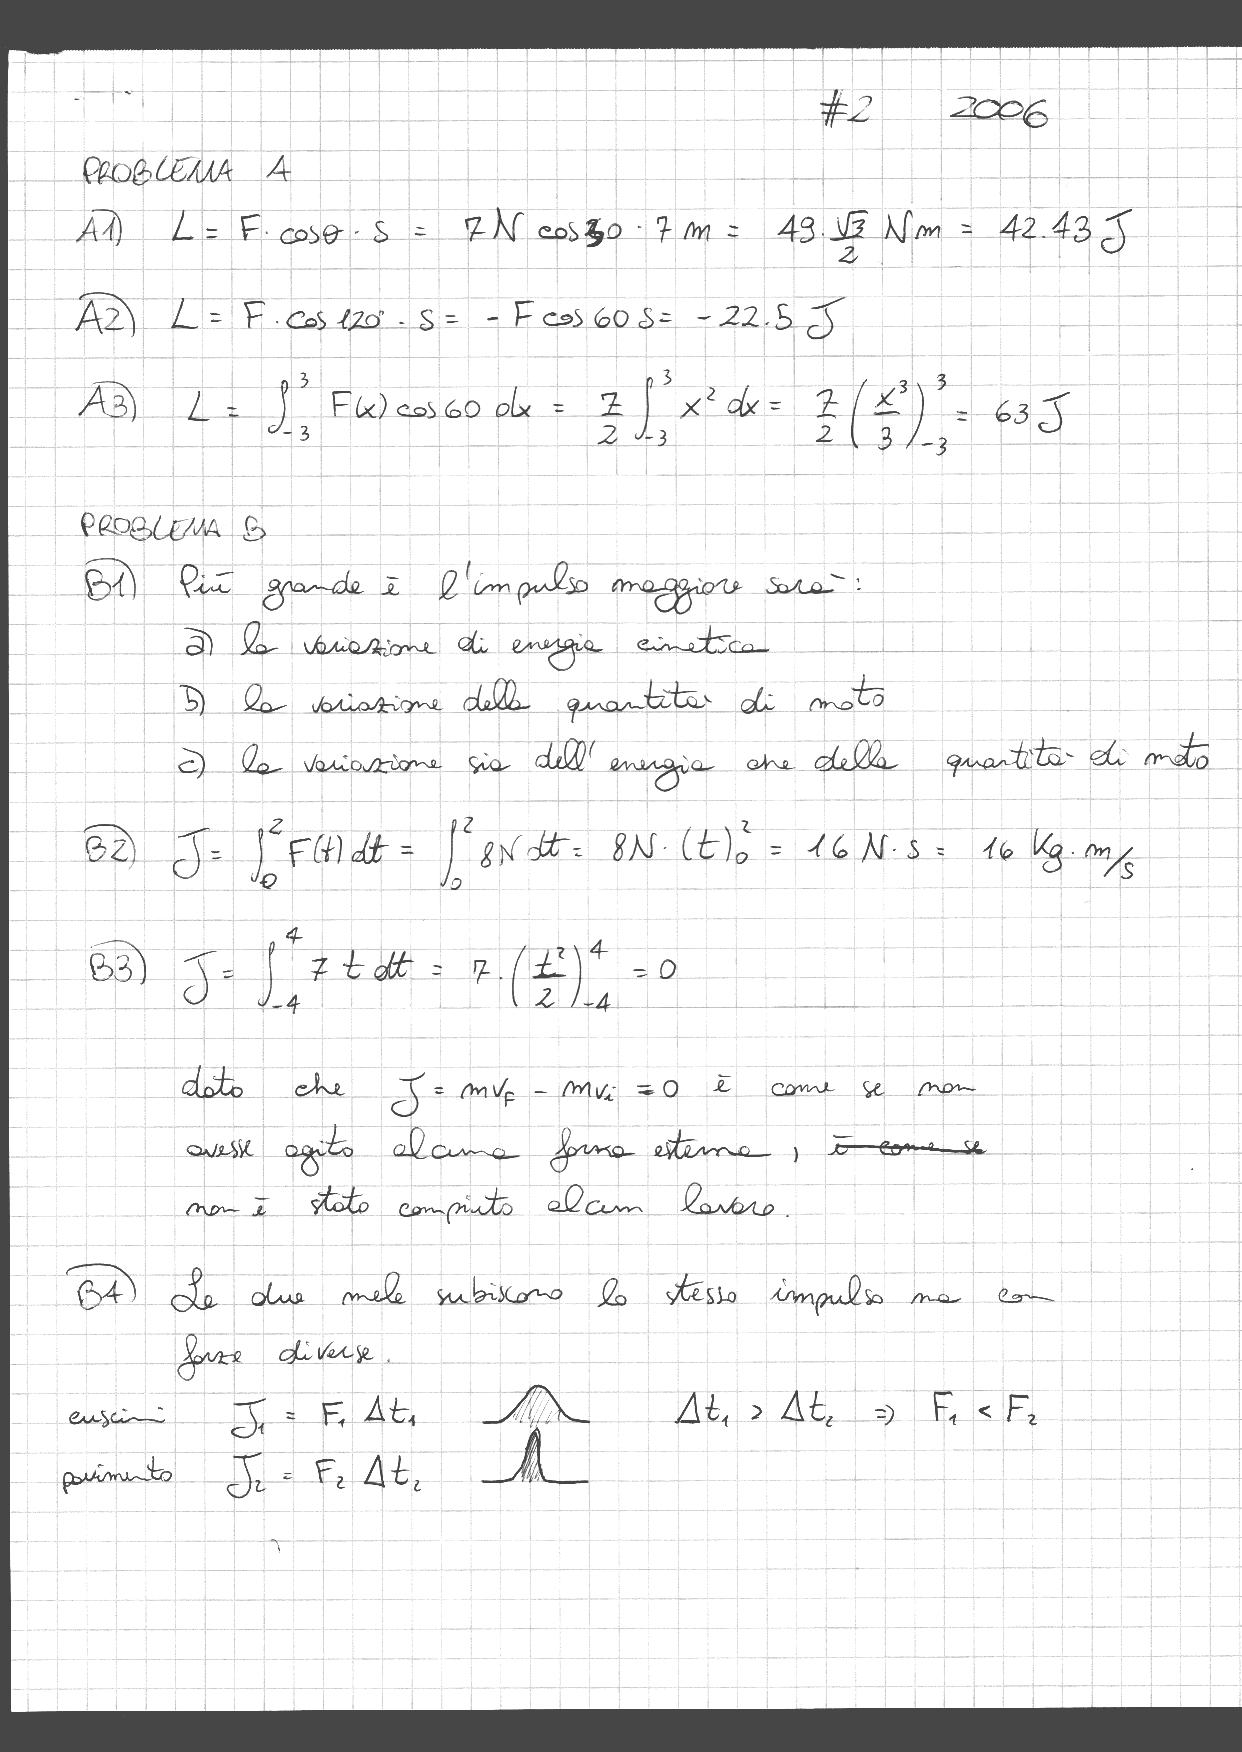 #2 2006
PROBLEMA A
A1) L = F · cosθ · s = 7N cos30 · 7 m = 49 · √3/2 Nm = 42.43 J
A2) L = F · cos 120° · s = - F cos 60 s = - 22.5 J
A3) L = ∫_{-3}^{3} F(x) cos 60 dx = 7/2 ∫_{-3}^{3} x² dx = 7/2 (x³/3)_{-3}^{3} = 63 J
PROBLEMA B
B1) Più grande è l'impulso maggiore sarà:
a) la variazione di energia cinetica
b) la variazione della quantità di moto
c) la variazione sia dell'energia che della quantità di moto
B2) J = ∫_{0}^{2} F(t) dt = ∫_{0}^{2} 8N dt = 8N · (t)_{0}^{2} = 16 N · s = 16 Kg · m/s
B3) J = ∫_{-4}^{4} 7 t dt = 7 · (t²/2)_{-4}^{4} = 0
dato che J = mv_F - mv_i = 0 è come se non
avesse agito alcuna forza esterna, è come se
non è stato compiuto alcun lavoro.
B4) Le due mele subiscono lo stesso impulso ma con
forze diverse.
cuscini J₁ = F₁ Δt₁ Δt₁ > Δt₂ ⇒ F₁ < F₂
pavimento J₂ = F₂ Δt₂